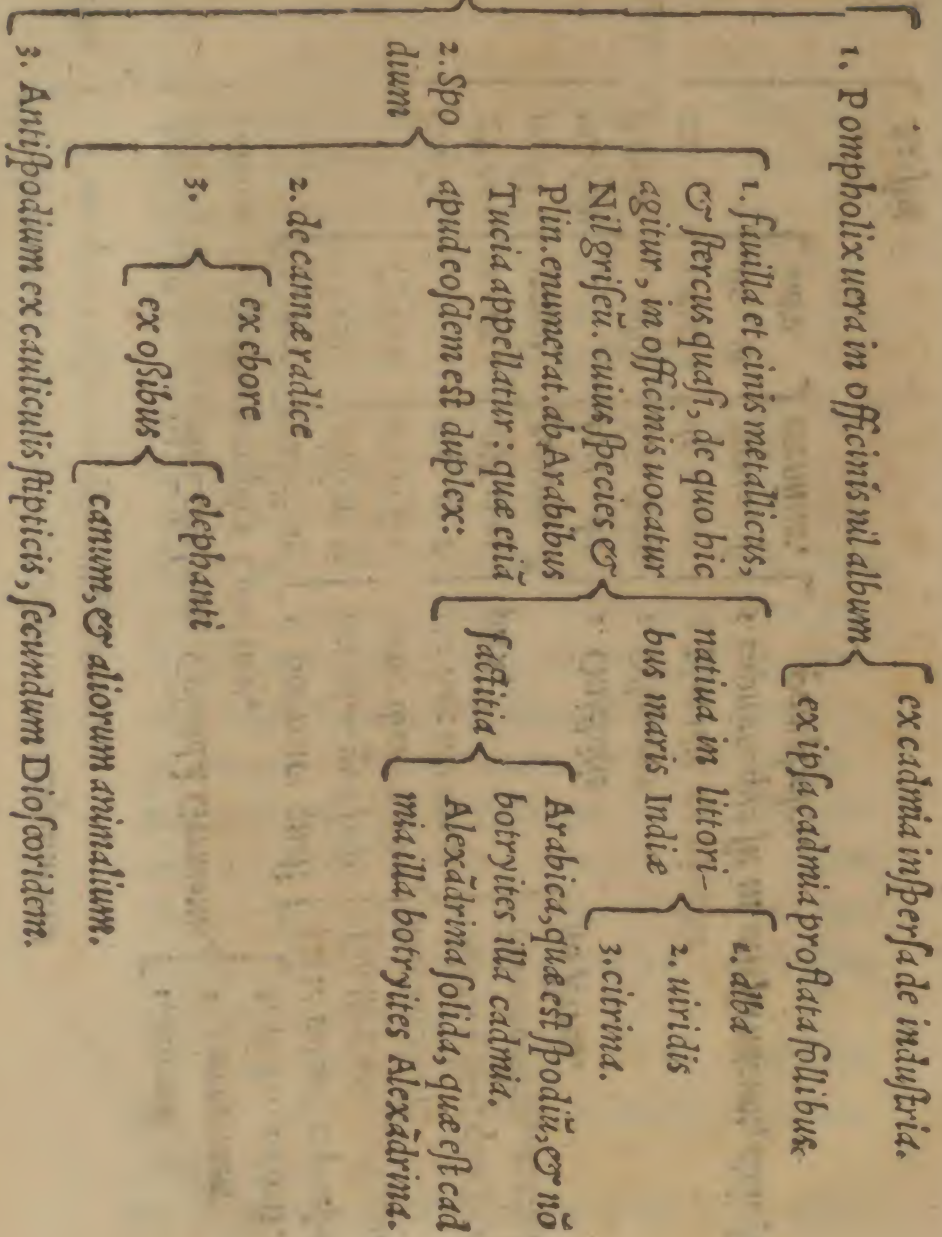 1. Pompholix uera in officinis nil album
ex cadmia inſperſa de induſtria.
ex ipſa cadmia proflata follibus.
2. Spo
dium
1. fauilla et cinis metallicus,
& ſtercus quaſi, de quo hic
agitur, in officinis uocatur
Nil griſeũ. cuius ſpecies &
Plin. enumerat. ab Arabibus
Tucia appellatur: quæ etiã
apud eoſdem eſt duplex:
natiua in littori-
bus maris Indiæ
1. alba
2. uiridis
3. citrina.
factitia
Arabica, quæ eſt ſpodiũ, & nõ
botryites illa cadmia.
Alexãdrina ſolida, quæ eſt cad
mia illa botryites Alexãdrina.
2. de cannæ radice
3.
ex ebore
ex oßibus
elephanti
canum, & aliorum animalium.
3. Antiſpodium ex cauliculis ſtipticis, ſecundum Dioſcoridem.